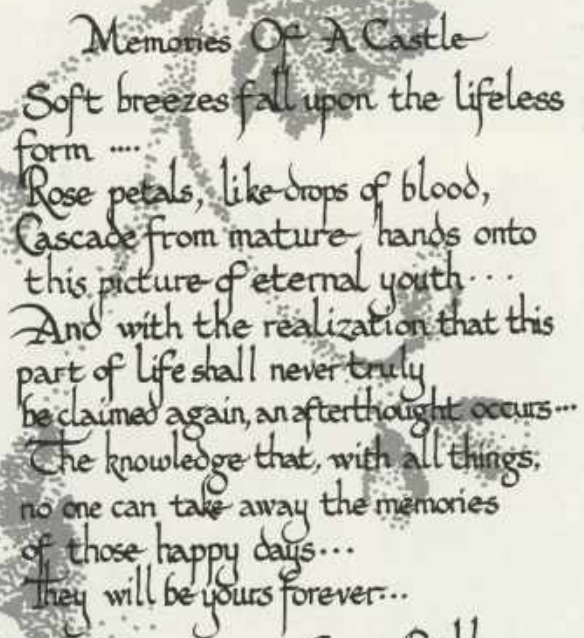 Memories Of A Castle
Soft breezes fall upon the lifeless
form ....
Rose petals, like drops of blood,
Cascade from mature hands onto
this picture of eternal youth...
And with the realization that this
part of life shall never truly
be claimed again, an afterthought occurs...
The knowledge that, with all things,
no one can take away the memories
of those happy days...
They will be yours forever...